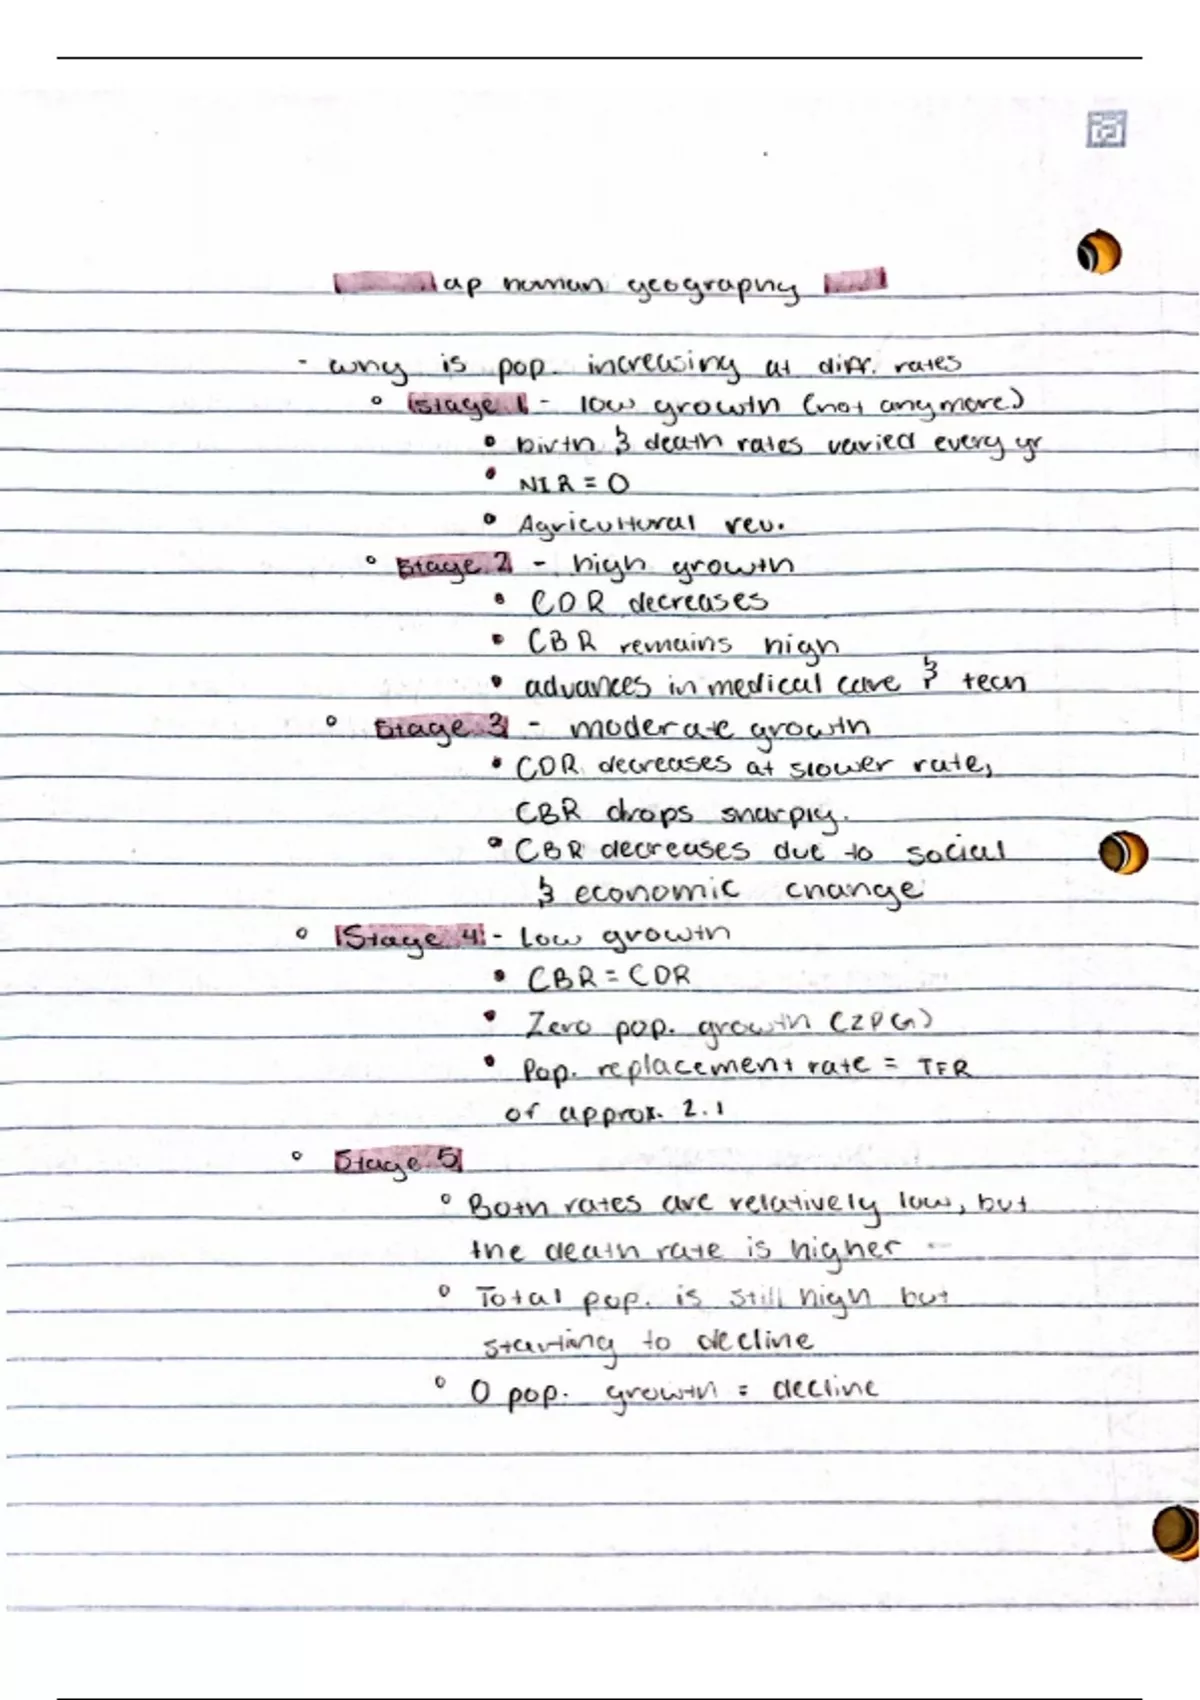 ap human geography
- why is pop. increasing at diff. rates
° Stage 1 - low growth (not anymore)
• birth & death rates varied every yr
• NIR = 0
• Agricultural rev.
° Stage 2 - high growth
• CDR decreases
• CBR remains high
• advances in medical care & tech
° Stage 3 - moderate growth
• CDR decreases at slower rate,
CBR drops sharply.
• CBR decreases due to social
& economic change
° Stage 4 - Low growth
• CBR = CDR
• Zero pop. growth (ZPG)
• Pop. replacement rate = TFR
of approx. 2.1
° Stage 5
° Both rates are relatively low, but
the death rate is higher
° Total pop. is still high but
starting to decline
° 0 pop. growth = decline